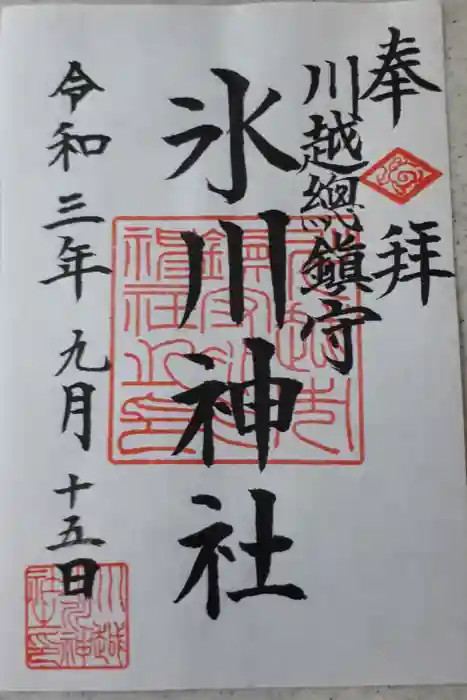 奉拝
川越總鎮守
氷川神社
令和三年九月十五日